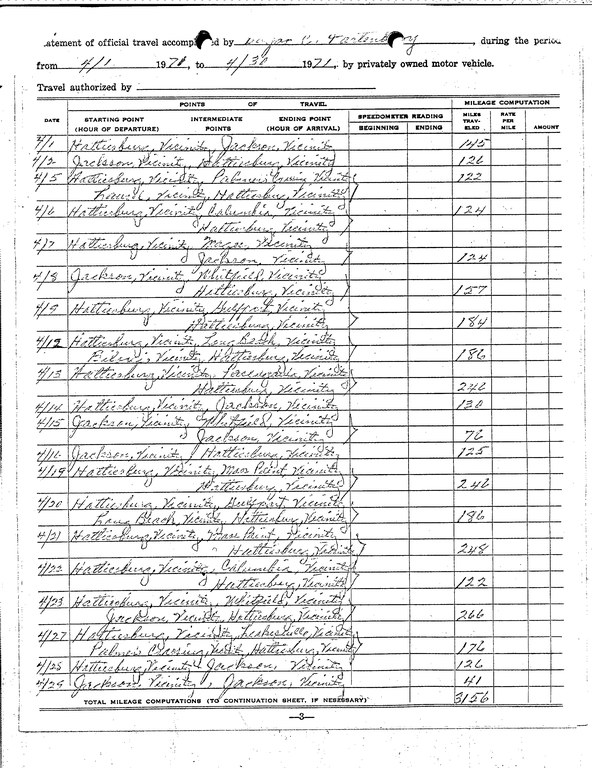 atement of official travel accomp ed by , during the perio
from 4/1 1971, to 4/30 1971, by privately owned motor vehicle.
Travel authorized by
POINTS OF TRAVEL MILEAGE COMPUTATION
DATE STARTING POINT (HOUR OF DEPARTURE) INTERMEDIATE POINTS ENDING POINT (HOUR OF ARRIVAL) SPEEDOMETER READING BEGINNING ENDING MILES TRAVELED RATE PER MILE AMOUNT
4/1 Hattiesburg, Vicinity, Jackson, Vicinity 145
4/2 Jackson, Vicinity, Hattiesburg, Vicinity 126
4/5 Hattiesburg, Vicinity, Palmers Crossing, Vicinity 122
Laurel, Vicinity, Hattiesburg, Vicinity
4/6 Hattiesburg, Vicinity, Columbia, Vicinity 124
Hattiesburg, Vicinity
4/7 Hattiesburg, Vicinity, Magee, Vicinity
Jackson, Vicinity 124
4/8 Jackson, Vicinity, Whitfield, Vicinity
Hattiesburg, Vicinity 157
4/9 Hattiesburg, Vicinity Gulfport, Vicinity
Hattiesburg, Vicinity 184
4/12 Hattiesburg, Vicinity, Long Beach, Vicinity
Biloxi, Vicinity, Hattiesburg, Vicinity 186
4/13 Hattiesburg, Vicinity, Pascagoula, Vicinity
Hattiesburg, Vicinity 246
4/14 Hattiesburg, Vicinity, Jackson, Vicinity 130
4/15 Jackson, Vicinity, Whitfield, Vicinity
Jackson, Vicinity 76
4/16 Jackson, Vicinity, Hattiesburg, Vicinity 125
4/19 Hattiesburg, Vicinity, Moss Point, Vicinity
Hattiesburg, Vicinity 246
4/20 Hattiesburg, Vicinity, Gulfport, Vicinity
Long Beach, Vicinity, Hattiesburg, Vicinity 186
4/21 Hattiesburg, Vicinity, Moss Point, Vicinity
Hattiesburg, Vicinity 248
4/22 Hattiesburg, Vicinity, Columbia, Vicinity
Hattiesburg, Vicinity 122
4/23 Hattiesburg, Vicinity, Whitfield, Vicinity
Jackson, Vicinity Hattiesburg, Vicinity 266
4/27 Hattiesburg, Vicinity, Vicinity
Palmers Crossing, Vicinity, Hattiesburg, Vicinity 176
4/28 Hattiesburg, Vicinity, Jackson, Vicinity 126
4/29 Jackson, Vicinity, Jackson, Vicinity 41
TOTAL MILEAGE COMPUTATIONS (TO CONTINUATION SHEET, IF NECESSARY) 3156
—3—